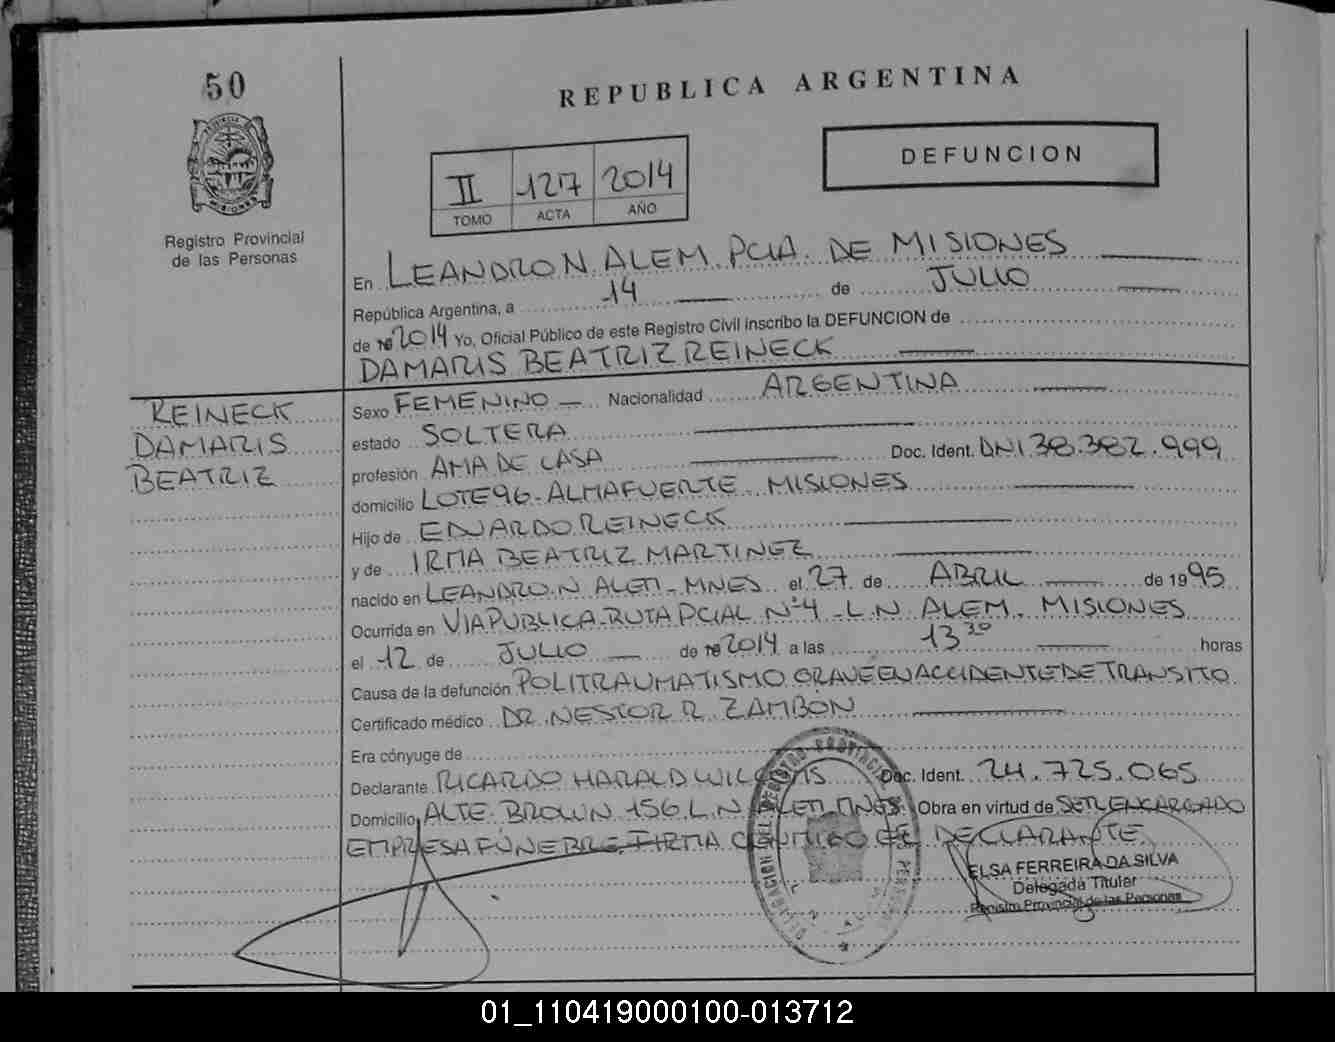 50
REPUBLICA ARGENTINA
DEFUNCION
II 127 2014
TOMO ACTA AÑO
Registro Provincial
de las Personas
En LEANDRO N. ALEM. PCIA. DE MISIONES
República Argentina, a 14 de JULIO
de 2014 Yo, Oficial Público de este Registro Civil inscribo la DEFUNCION de
DAMARIS BEATRIZ REINECK
REINECK
DAMARIS
BEATRIZ
Sexo FEMENINO Nacionalidad ARGENTINA
estado SOLTERA
profesión AMA DE CASA Doc. Ident. DNI 38.382.999
domicilio LOTE 96 - ALMAFUERTE MISIONES
Hijo de EDUARDO REINECK
y de IRMA BEATRIZ MARTINEZ
nacido en LEANDRO N ALEM - MNES el 27 de ABRIL de 1995
Ocurrida en VIA PUBLICA - RUTA PCIAL Nº 4 - L.N. ALEM. MISIONES
el 12 de JULIO de 2014 a las 13 30 horas
Causa de la defunción POLITRAUMATISMO GRAVE EN ACCIDENTE DE TRANSITO
Certificado médico DR. NESTOR R. ZAMBON
Era cónyuge de
Declarante RICARDO HARALD Doc. Ident. 24.725.065
Domicilio ALTE. BROWN 156 L.N. ALEM MNES. Obra en virtud de SER ENCARGADO
EMPRESA FUNEBRE. FIRMA CONMIGO EL DECLARANTE.
ELSA FERREIRA DA SILVA
Delegada Titular
Registro Provincial de las Personas
01_110419000100-013712